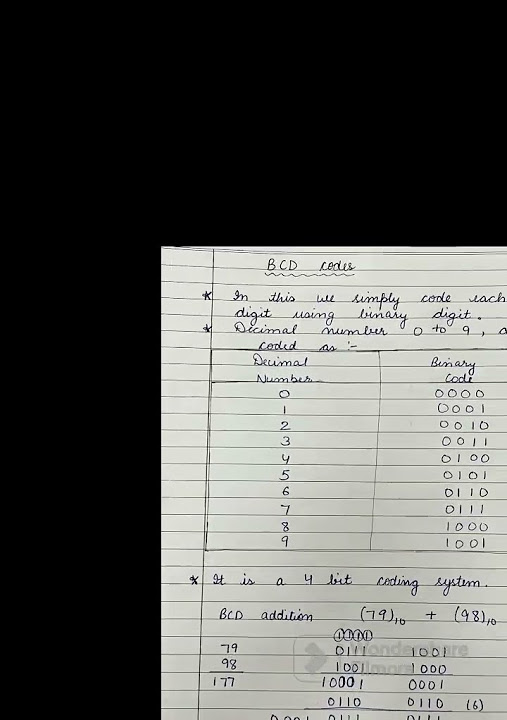 BCD codes
* In this we simply code each
digit using binary digit.
* Decimal number 0 to 9, a
coded as :-
Decimal Binary
Number Code
0 0000
1 0001
2 0010
3 0011
4 0100
5 0101
6 0110
7 0111
8 1000
9 1001
* It is a 4 bit coding system.
BCD addition (79)10 + (98)10
79 0111 1001
98 1001 1000
177 10001 0001
0110 0110 (6)